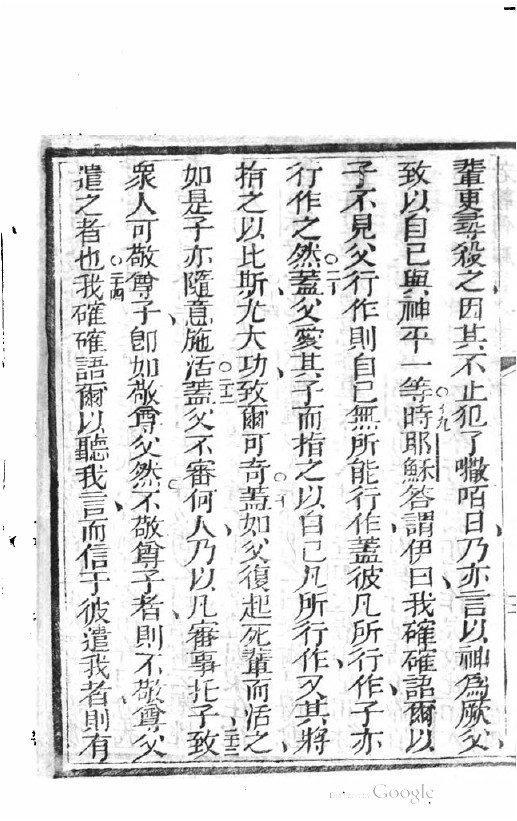 輩更尋殺之因其不止犯了𡁠咟日乃亦言以神為厥父
致以自己與神平一等時耶穌答謂伊曰我確確語爾以
子不見父行作則自己無所能行作蓋彼凡所行作子亦
行作之然蓋父愛其子而指之以自己凡所行作又其將
指之以比斯尤大功致爾可奇蓋如父復起死輩而活之
如是子亦隨意施活蓋父不審何人乃以凡審事托子致
衆人可敬尊子即如敬尊父然不敬尊子者則不敬尊父
遣之者也我確確語爾以聽我言而信于彼遣我者則有
Google